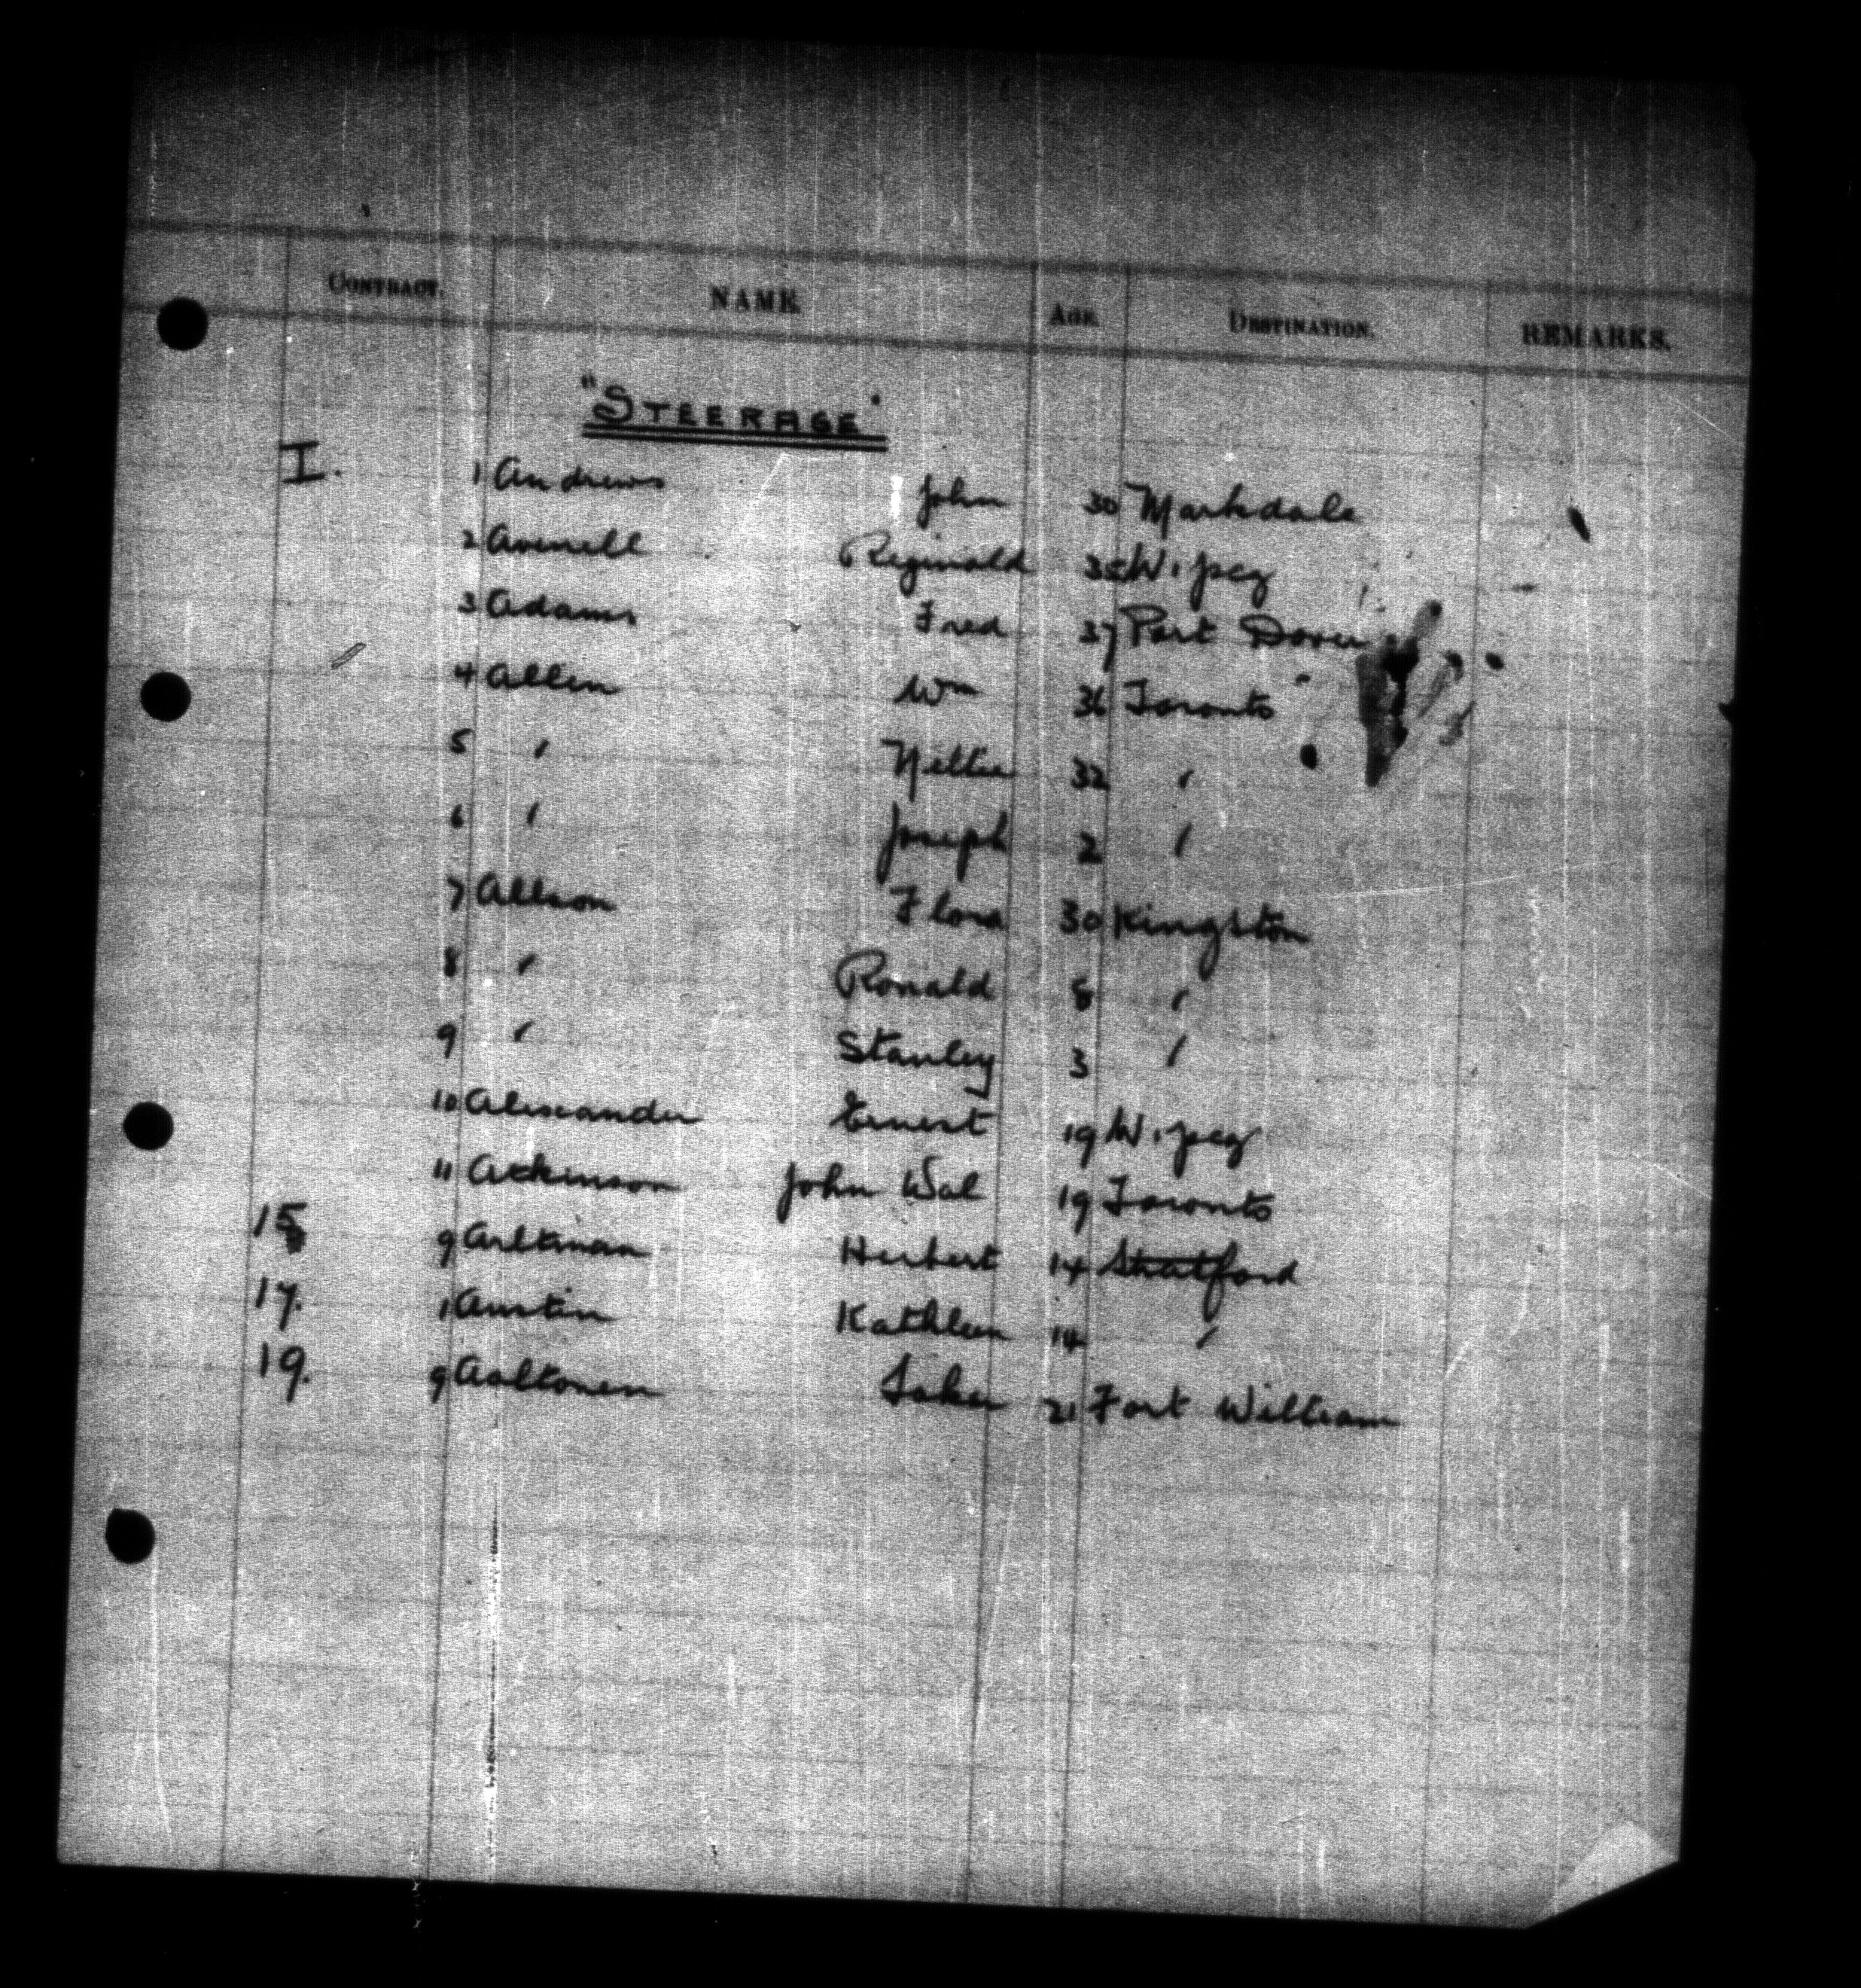 CONTRACT. NAME. AGE. DESTINATION. REMARKS.
"STEERAGE"
I. 1 Andrews John 30 Markdale
2 Avenell Reginald 35 W'peg
3 Adams Fred 37 Port Dover
4 Allen Wm 36 Toronto
5 " Nellie 32 "
6 " Joseph 2 "
7 Allson Flora 30 Kingston
8 " Ronald 8 "
9 " Stanley 3 "
10 Alexander Ernest 19 W'peg
11 Atkinson John Wal 19 Toronto
15 9 Arltman Herbert 14 Stratford
17. 1 Austin Kathleen 14 "
19. 9 Aaltonen 21 Fort William